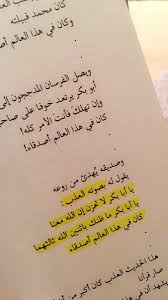 كان محمد قبلته
وكان في هذا العالم أصدقاء
ووصل الفرسان المدججون إلى
أبو بكر يرتعد خوفا على صاحبه
وإن تهلك فأنت الأمر كله!
كان في هذا العالم أصدقاء!
وصديقه يُهدئ من روعه
يقول له بصوته العذب:
يا أبا بكر لا تحزن إن الله معنا
يا أبا بكر ما ظنك باثنين الله ثالثهما
كان في هذا العالم أصدقاء!
هذا الحديث العذب كان أكبر من